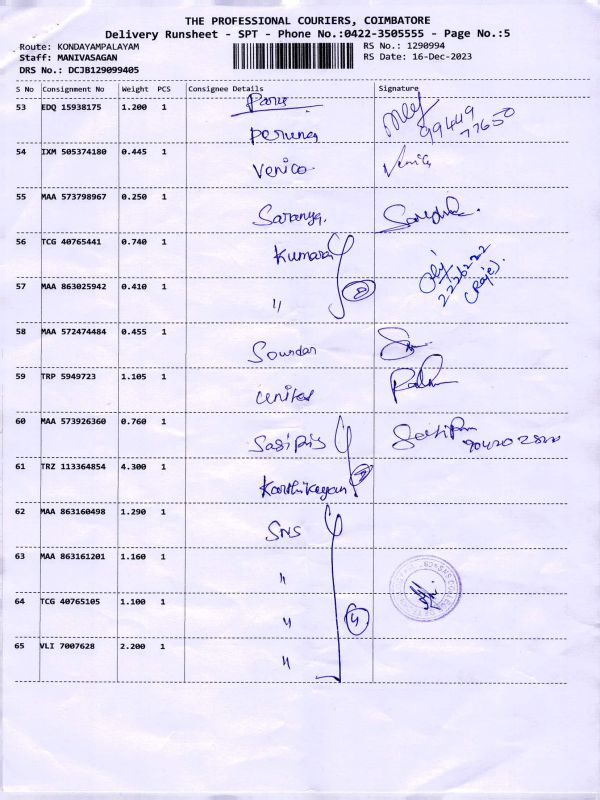 THE PROFESSIONAL COURIERS, COIMBATORE
Delivery Runsheet - SPT - Phone No.:0422-3505555 - Page No.:5
Route: KONDAYAMPALAYAM RS No.: 1290994
Staff: MANIVASAGAN RS Date: 16-Dec-2023
DRS No.: DCJB129099405
S No Consignment No Weight PCS Consignee Details Signature
53 EDQ 15938175 1.200 1
99449
77650
54 IXM 505374180 0.445 1 Venica
55 MAA 573798967 0.250 1 Saranya.
56 TCG 40765441 0.740 1 Kumara
2226222
(Raje)
57 MAA 863025942 0.410 1 " 8
58 MAA 572474484 0.455 1 Soundar
59 TRP 5949723 1.105 1 United
60 MAA 573926360 0.760 1
61 TRZ 113364854 4.300 1 Karthikeyan
62 MAA 863160498 1.290 1 SNS
63 MAA 863161201 1.160 1 "
64 TCG 40765105 1.100 1 " 4
65 VLI 7007628 2.200 1 "